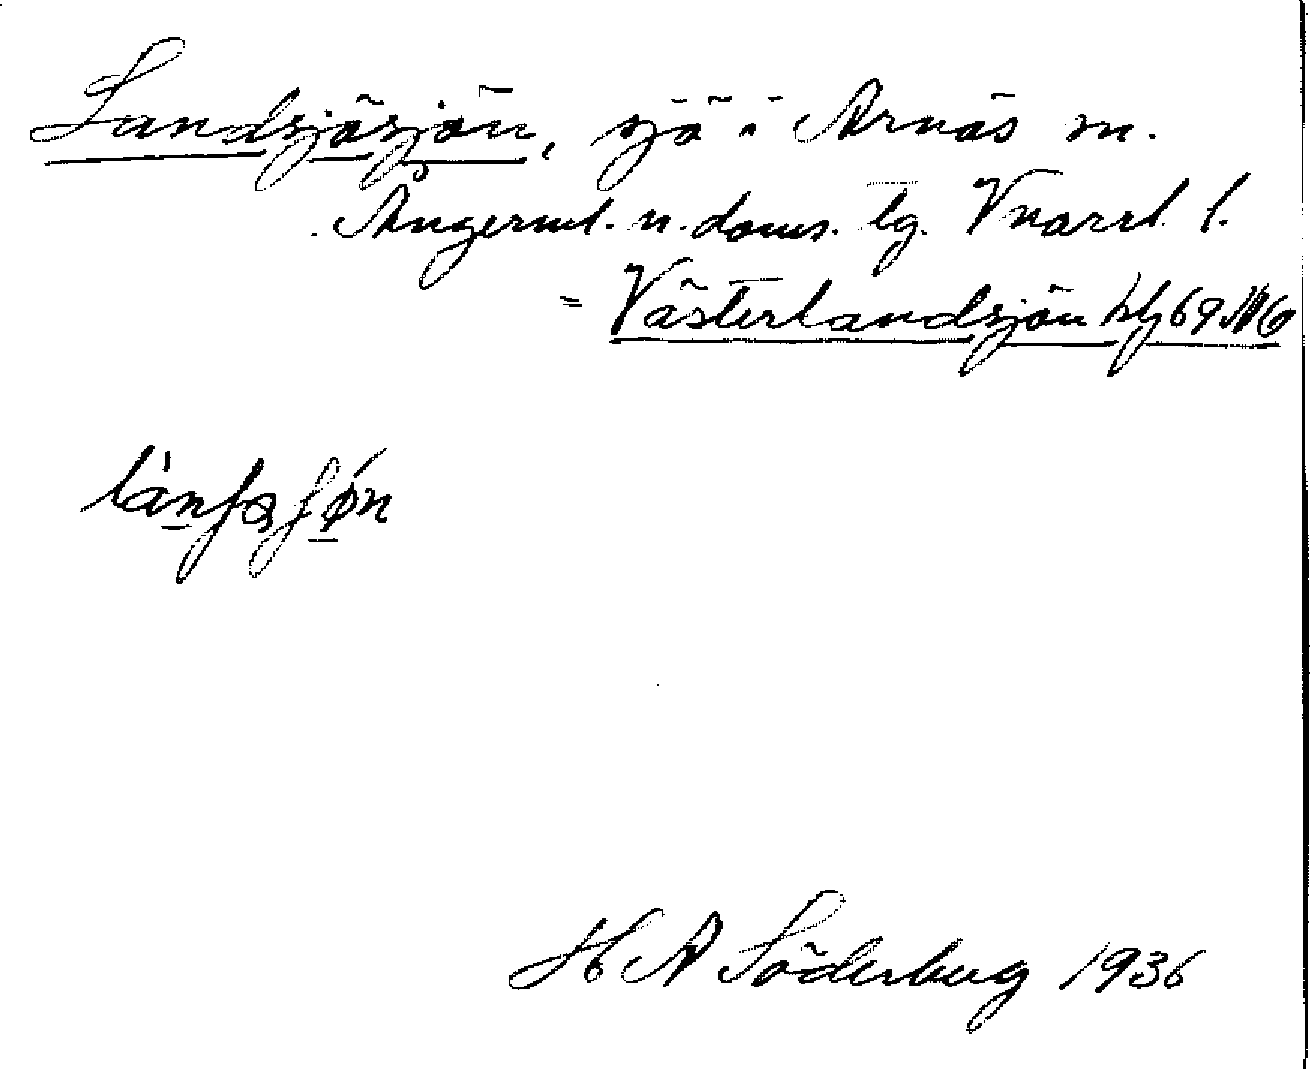 Landsjösjön, sjö i Arnäs sn.
Ångerml. n. doms. lg. Vnorrl. l.
= Västerlandsjön hbl 69 NV 6
H A Söderberg 1936